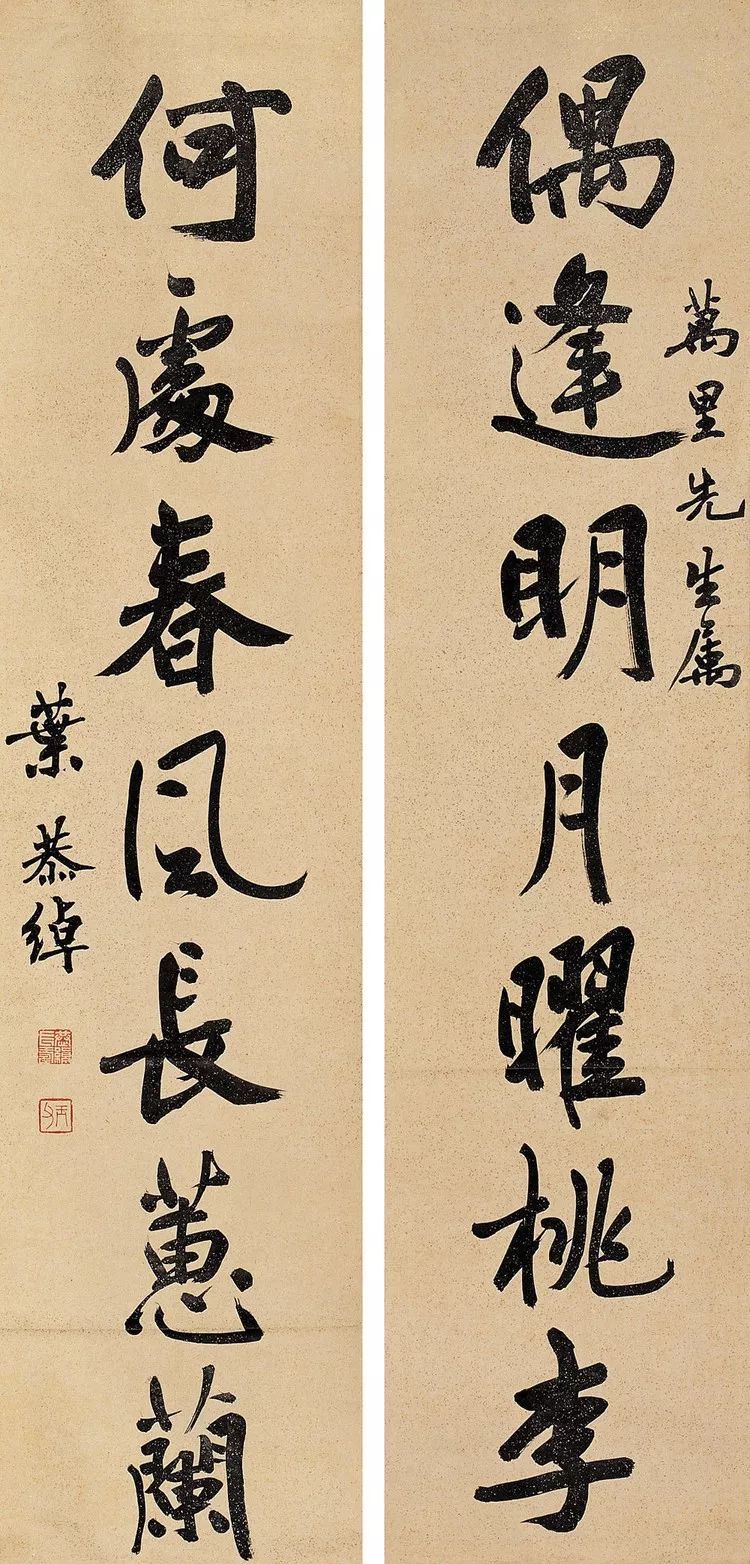 萬里先生属
偶逢明月曜桃李
何處春風長蕙蘭
葉恭綽